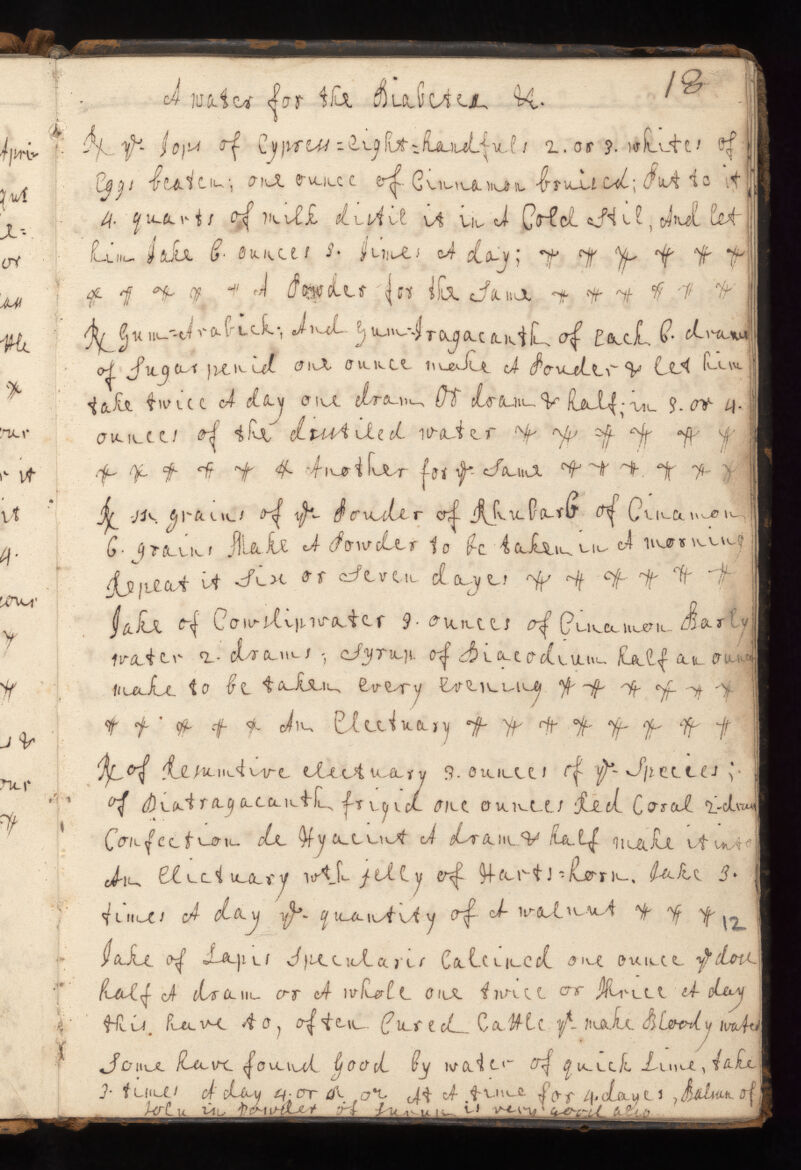 18
A water for the Diabetes &c.
℞ yᵉ Tops of Cypress=eight=handfuls 2. or 3. whites of
Eggs beaten; one ounce of Cinnamon bruised; Put to it
4. quarts of milk distil it in A Cold Stil, And let
him Take 6. ounces 3. times A day;
A Powder for the Same
℞ Gum=Arabick; And Gum=Tragacanth of Each 6. drams
of Sugar penid one ounce make A Pouder & let him
take twice A day one dram Or dram & half; in 3. or 4.
ounces of the distiled water
Another for yᵉ Same
℞ grains of yᵉ Pouder of Rhubarb of Cinamon
6. grains Make A Powder to be taken in A morning
Repeat it Six or Seven dayes
Take of Cowslipwater 3. ounces of Cinamon Barly
water 2. drams; Syrup of Diacodium half an ounce
make to be taken every evening
An Electuary
℞ of Resumtive electuary 3. ounces of yᵉ Species;
of Diatragacanth frigid one ounces Red Coral 2-dram
Confection de Hyacint A dram & half make it into
An Elictuary wth jelly of Harts=horn. Take 3.
times A day yᵉ quantity of A walnut
12
Take of Lapis Specularis Calcined one ounce yᵉ dose
half A dram or A whole one twice or thrice A day
this have to, often Cured Cattle yᵗ make Bloody water
Some have found Good by water of quick Lime, take
3. times A day 4. or At A time for 4. dayes, Balsum of
Tolu in Powder or Syrup is very good also